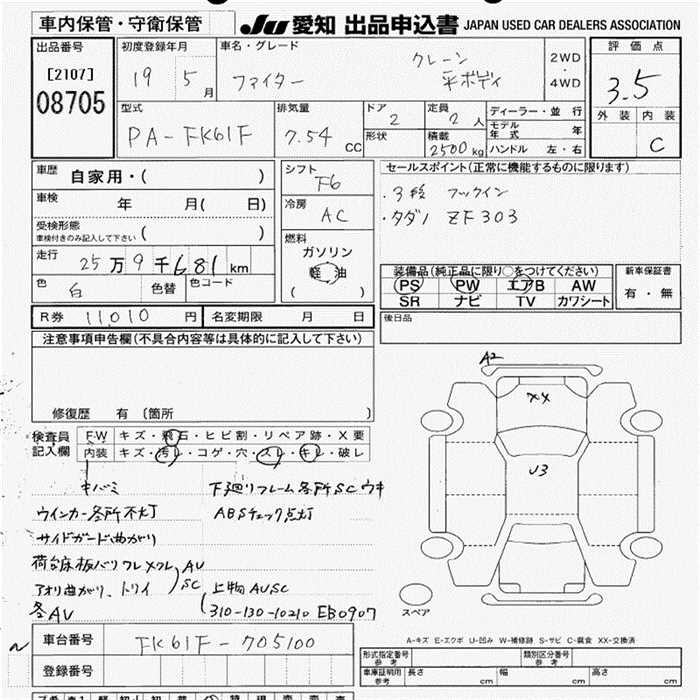 車内保管・守衛保管
JU 愛知 出品申込書 JAPAN USED CAR DEALERS ASSOCIATION
出品番号
[2107]
08705
初度登録年月
19 5 月
車名・グレード
ファイター
クレーン
平ボディ
2WD
・
4WD
評価点
3.5
外装 内装
C
型式
PA-FK61F
排気量
7.54 CC
ドア
2
形状
定員
2 人
積載
2500 kg
ディーラー・並行
モデル年式 年
ハンドル 左・右
車歴 自家用・( )
車検 年 月( 日)
受検形態
車検付きのみ記入して下さい ( )
走行 25万9千681 km
色 白 色替 色コード
シフト
F6
冷房
AC
燃料
ガソリン
軽油
( )
セールスポイント(正常に機能するものに限ります)
・3段 フックイン
・タダノ ZF303
装備品(純正品に限り○をつけてください)
PS PW エアB AW
SR ナビ TV カワシート
新車保証書
有・無
R券 11,010 円 名変期限 月 日
後日品
注意事項申告欄(不具合内容等は具体的に記入して下さい)
修復歴 有 〔箇所 〕
検査員
記入欄
F-W キズ・飛石・ヒビ割・リペア跡・X要
内装 キズ・汚レ・コゲ・穴・スレ・キレ・破レ
キバミ
下廻りフレーム各所SCウキ
ウインカー各所不灯
ABSチェック点灯
サイドガード曲がり
荷台床板バリワレメクレ AU
アオリ曲がり、トリイ SC
各AU
上物AUSC
310-130-10210 EB0907
A2
XX
U3
スペア
A-キズ E-エクボ U-凹み W-補修跡 S-サビ C-腐食 XX-交換済
車台番号 FK61F-705100
登録番号
形式指定番号
参考
類別区分番号
参考
車庫証明用
参考
長さ cm 幅 cm 高さ cm